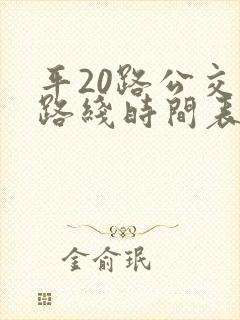 平20路公交
路线時間表
金俞珉